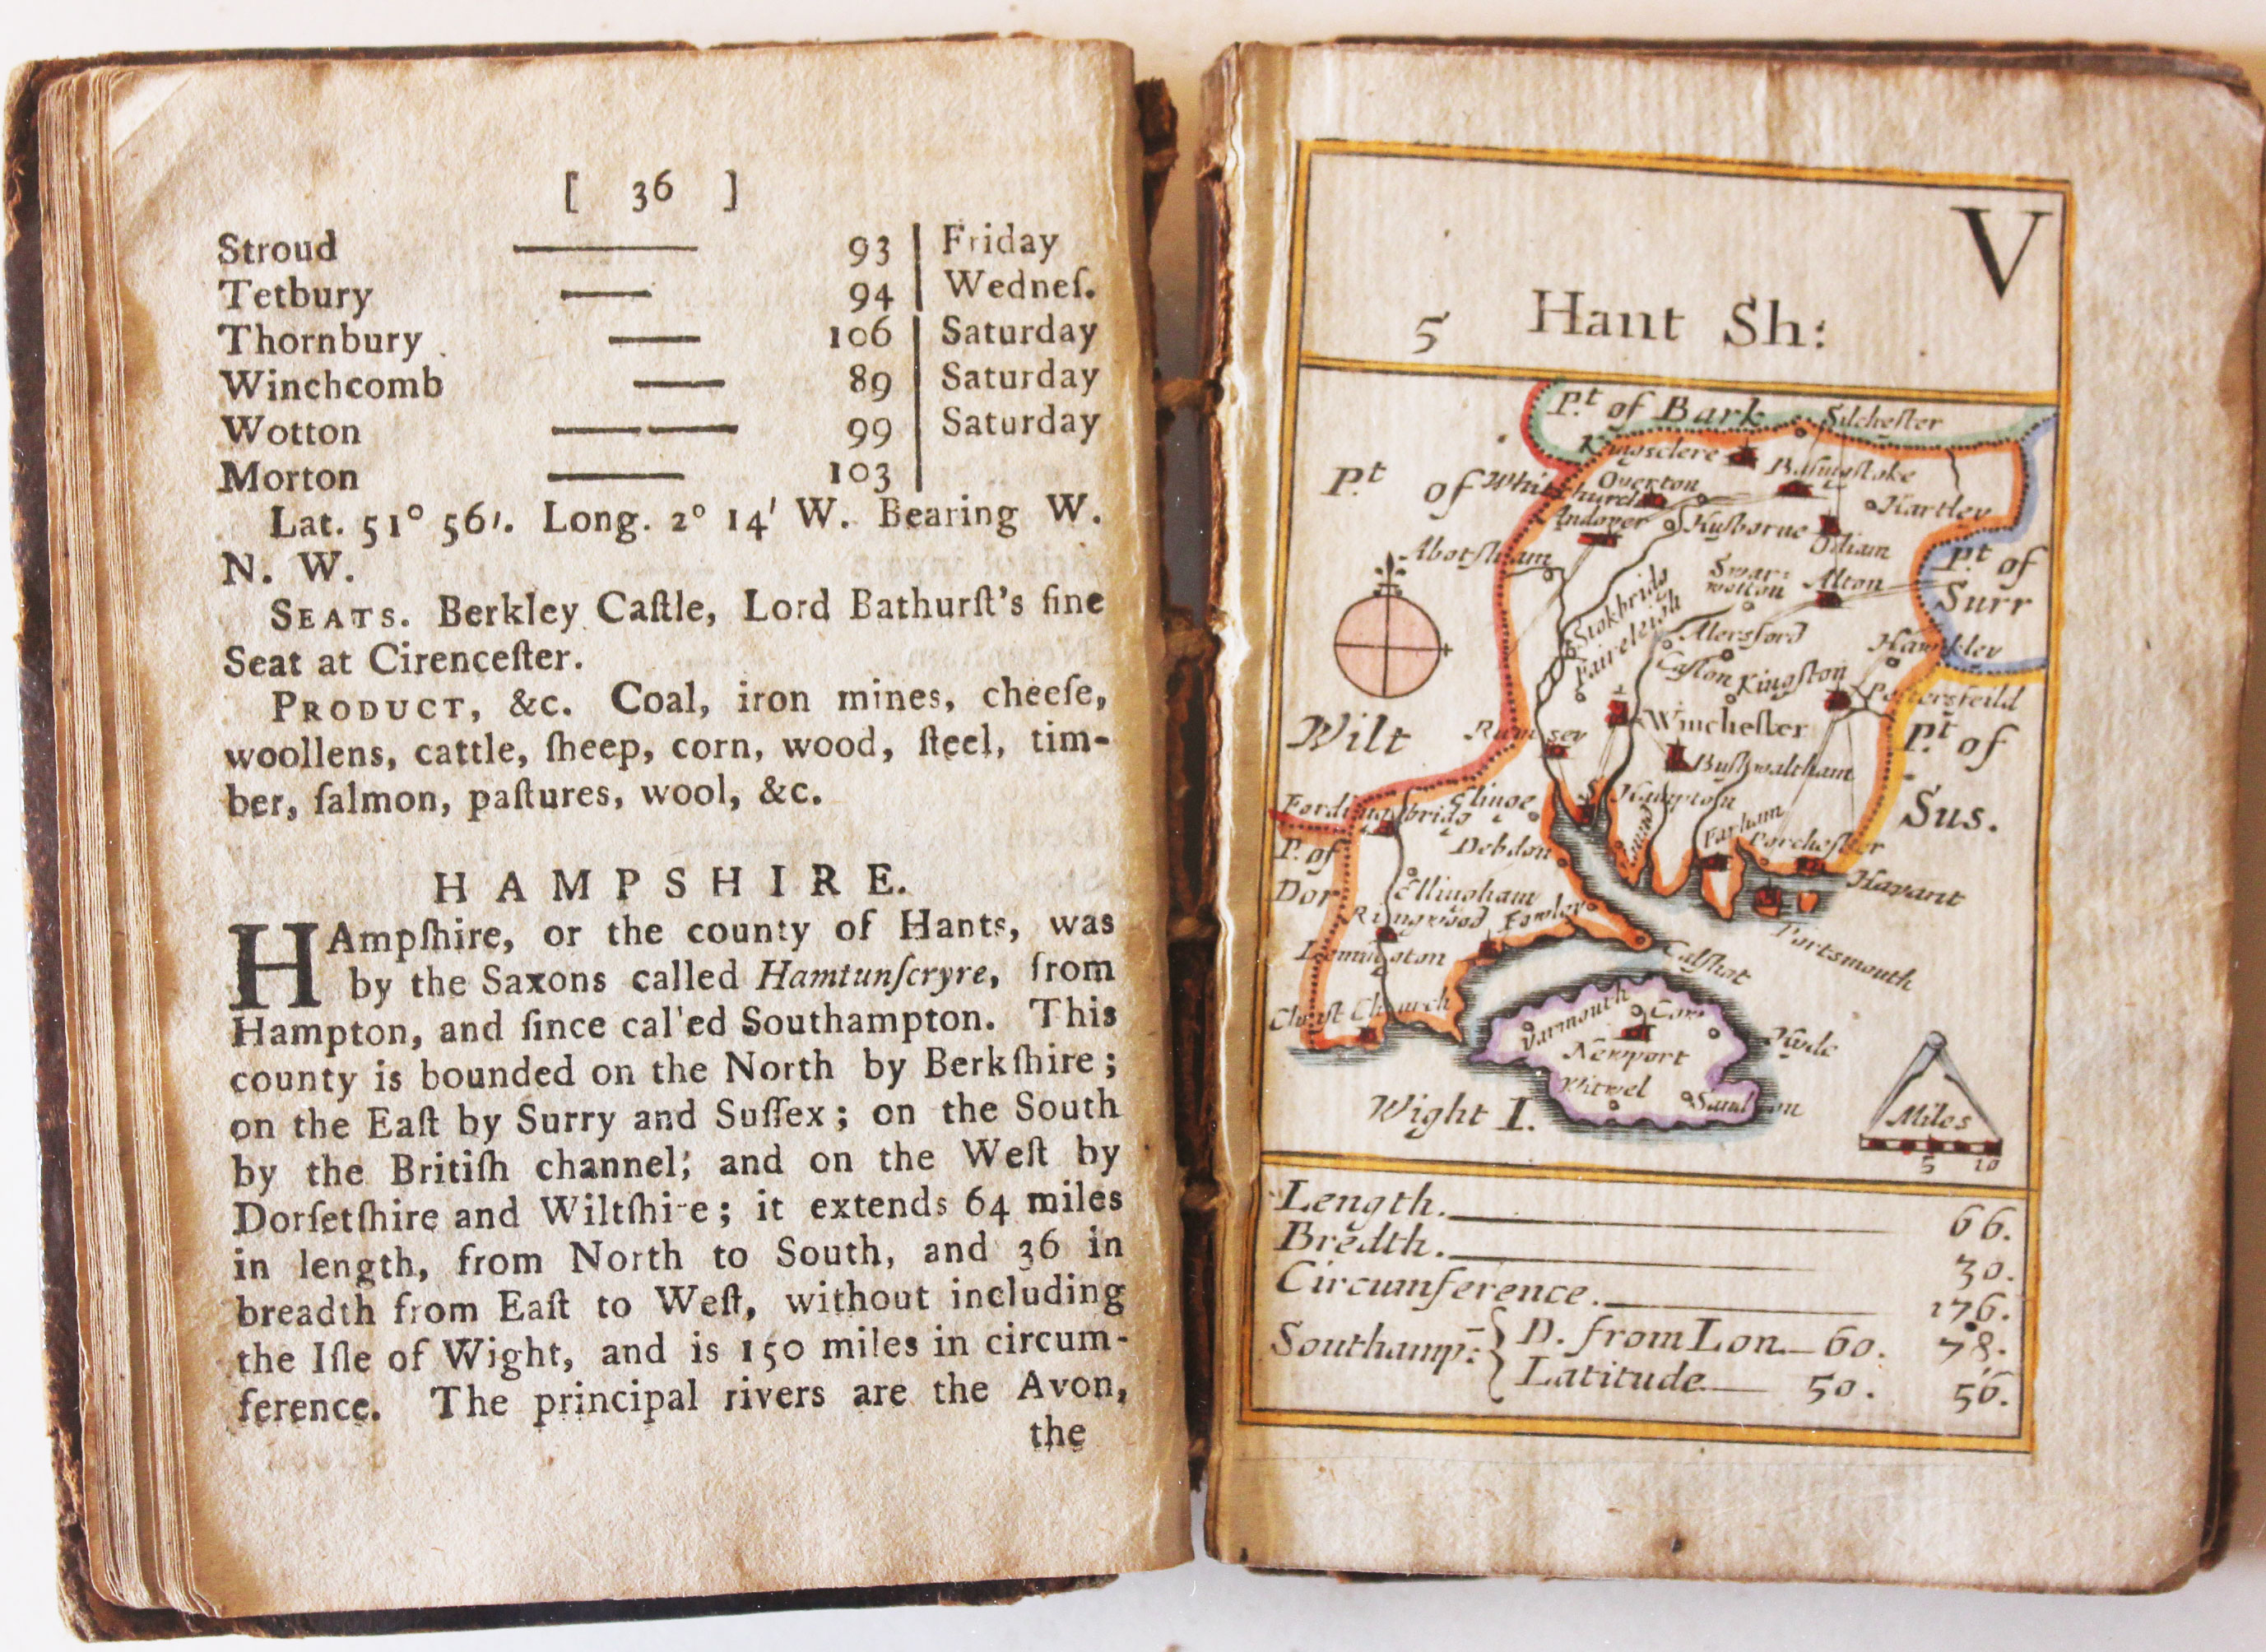 [ 36 ]
Stroud 93 Friday
Tetbury 94 Wedneſ.
Thornbury 106 Saturday
Winchcomb 89 Saturday
Wotton 99 Saturday
Morton 103
Lat. 51° 56′. Long. 2° 14′ W. Bearing W.
N. W.
SEATS. Berkley Caſtle, Lord Bathurſt's fine
Seat at Cirenceſter.
PRODUCT, &c. Coal, iron mines, cheeſe,
woollens, cattle, ſheep, corn, wood, ſteel, tim-
ber, ſalmon, paſtures, wool, &c.
HAMPSHIRE.
HAmpſhire, or the county of Hants, was
by the Saxons called Hamtunſcryre, from
Hampton, and ſince cal'ed Southampton. This
county is bounded on the North by Berkſhire;
on the Eaſt by Surry and Suſſex; on the South
by the Britiſh channel; and on the Weſt by
Dorſetſhire and Wiltſhi-e; it extends 64 miles
in length, from North to South, and 36 in
breadth from Eaſt to Weſt, without including
the Iſle of Wight, and is 150 miles in circum-
ference. The principal rivers are the Avon,
the
V
5 Hant Sh:
P.t of Bark
Silcheſter
Kingsclere
Baſingſtoke
P.t of
Wilt
Whitchurch
Overton
Hartley
Andover
Huſborne
Odiam
Abotſham
P.t of
Surr
Stokbridg
Swar=
wotton
Alton
Faireleigh
Alersford
Hawkley
Caſton
Kingſton
Petersfeild
Wincheſter
P.t of
Sus.
Rumsey
Buſhwaltham
S Hampton
Fordingbridg
Glinge
Farham
Porcheſter
P. of
Dor
Debdon
Havant
Ellingham
Ringwood
Fowley
Portsmouth
Lemington
Calſhot
Chriſt Church
Yarmouth
Cow
Newport
Witwel
Sandhon
Wight I.
Miles
5 10
Length. 66.
Bredth. 30.
Circumference. 176.
Southamp: D. from Lon. 60. 78.
Latitude 50. 56.